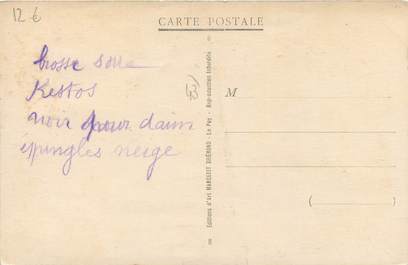 12 €
CARTE POSTALE
brosse
Kestos
noir pour daim
épingles neige
M
Editions d'art MARGERIT BRÉMOND - Le Puy - Reproduction interdite